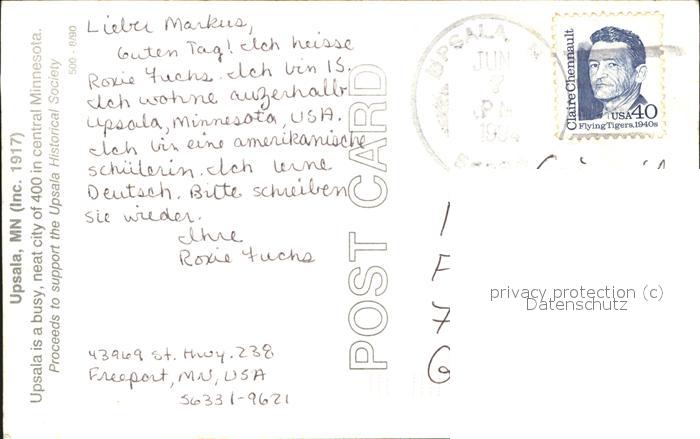 Upsala, MN (Inc. 1917)
Upsala is a busy, neat city of 400 in central Minnesota.
Proceeds to support the Upsala Historical Society
500 - 8/90
Lieber Markus,
Guten Tag! Ich heisse
Roxie Fuchs. Ich bin 15.
Ich wohne auzerhalb
Upsala, Minnesota, USA.
Ich bin eine amerikanische
schülerin. Ich lerne
Deutsch. Bitte schreiben
sie wieder.
Ihre
Roxie Fuchs
43969 St. Hwy. 238
Freeport, MN, USA
56331-9621
POST CARD
UPSALA, M
JUN
PM
Claire Chennault
USA 40
Flying Tigers, 1940s
privacy protection (c)
Datenschutz
F
7
G